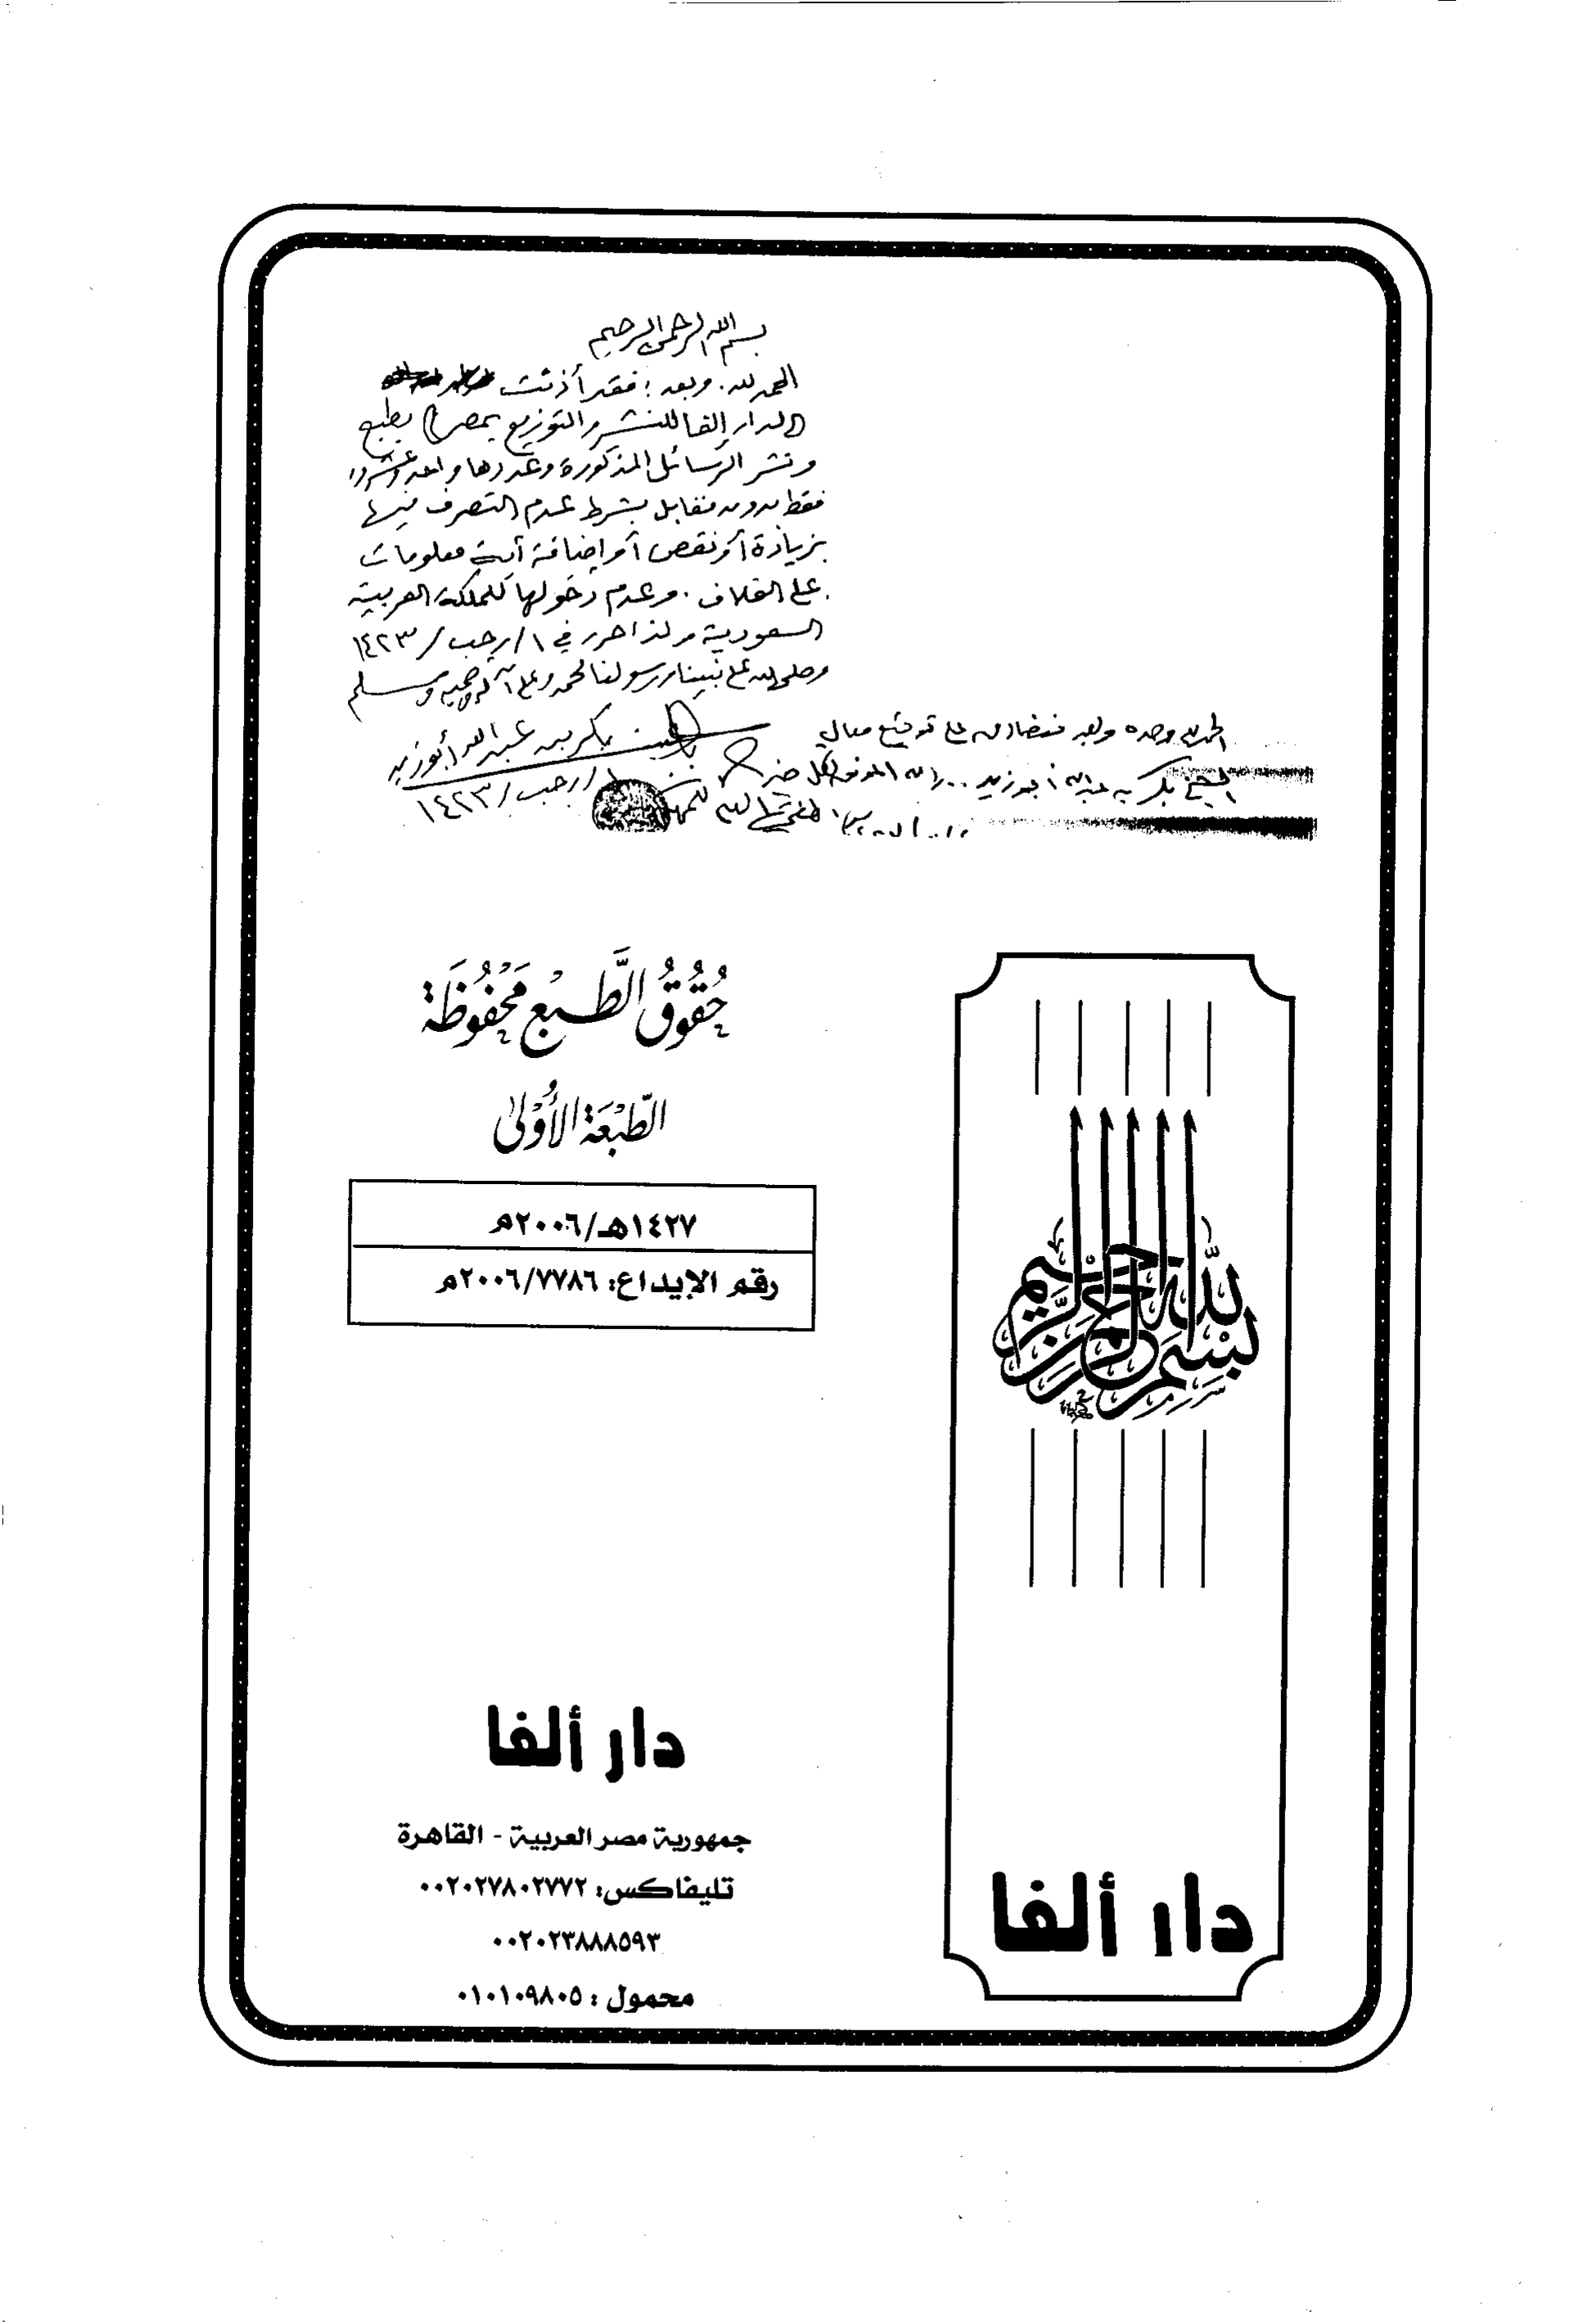 بسم الله الرحمن الرحيم
الحمد لله. وبعد: فقد أذنت
لدار ألفا للنشر والتوزيع بمصر بطبع
ونشر الرسائل المذكورة وعددها واحد وعشرون
فقط بدون مقابل بشرط عدم التصرف فيها
بزيادة أو نقص أو إضافة أية معلومات
على الغلاف. وعدم دخولها للمملكة العربية
السعودية ولذا حرر في ١/رجب/١٤٢٣
وصلى الله على نبينا ورسولنا محمد وعلى آله وصحبه وسلم
بكر بن عبد الله أبو زيد
١/رجب/١٤٢٣
الحمد لله وحده وبعد فنصادق على توقيع معالي
الشيخ بكر بن عبد الله أبو زيد
حُقُوقُ الطَّبْعِ مَحْفُوظَة
الطَّبْعَة الأُوْلىٰ
١٤٢٧هـ/٢٠٠٦م
رقم الإيداع: ٢٠٠٦/٧٧٨٦م
بسم الله الرحمن الرحيم
دار ألفا
جمهورية مصر العربية - القاهرة
تليفاكس: ٠٠٢٠٢٧٨٠٢٧٧٢
٠٠٢٠٢٣٨٨٨٥٩٣
محمول: ٠١٠١٠٩٨٠٥
دار ألفا